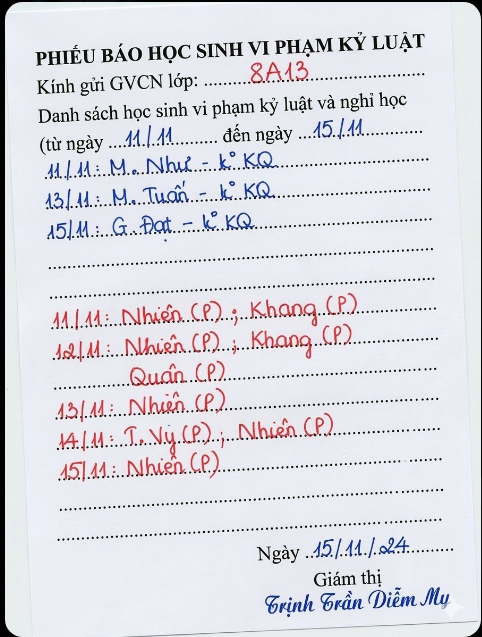 PHIẾU BÁO HỌC SINH VI PHẠM KỶ LUẬT
Kính gửi GVCN lớp: ........8A13........
Danh sách học sinh vi phạm kỷ luật và nghỉ học
(từ ngày ...11/11... đến ngày ...15/11...
11/11: M. Như - k° KQ
13/11: M. Tuấn - k° KQ
15/11: G. Đạt - k° KQ
11/11: Nhiên (P) ; Khang (P)
12/11: Nhiên (P) ; Khang (P)
Quân (P)
13/11: Nhiên (P)
14/11: T. Vy (P) ; Nhiên (P)
15/11: Nhiên (P)
Ngày ..15/11/24..
Giám thị
Trịnh Trần Diễm My